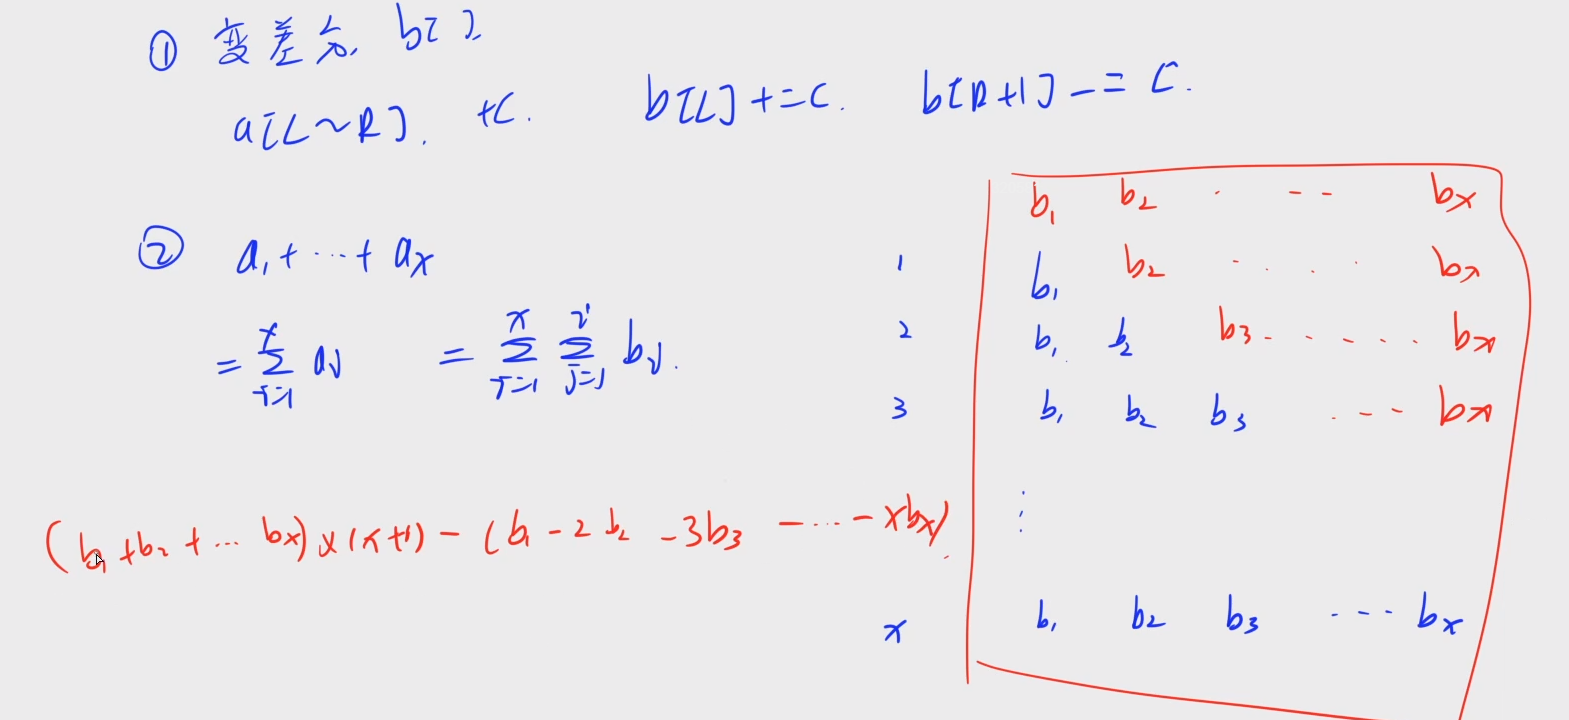 ① 变差分 b[ ]
a[L~R]. +C. b[L]+=C. b[R+1]-=C.
② a₁+···+aₓ
= ∑ᵢ₌₁ˣ aᵢ = ∑ᵢ₌₁ˣ ∑ⱼ₌₁ⁱ bⱼ.
b₁ b₂ · -- bₓ
1 b₁ b₂ ···· bₓ
2 b₁. b₂ b₃ ····· bₓ
3 b₁ b₂ b₃ ·-- bₓ
⋮
(b₁+b₂+··· bₓ)×(x+1)-(b₁-2b₂-3b₃-···-xbₓ).
x b₁ b₂ b₃ ·-- bₓ